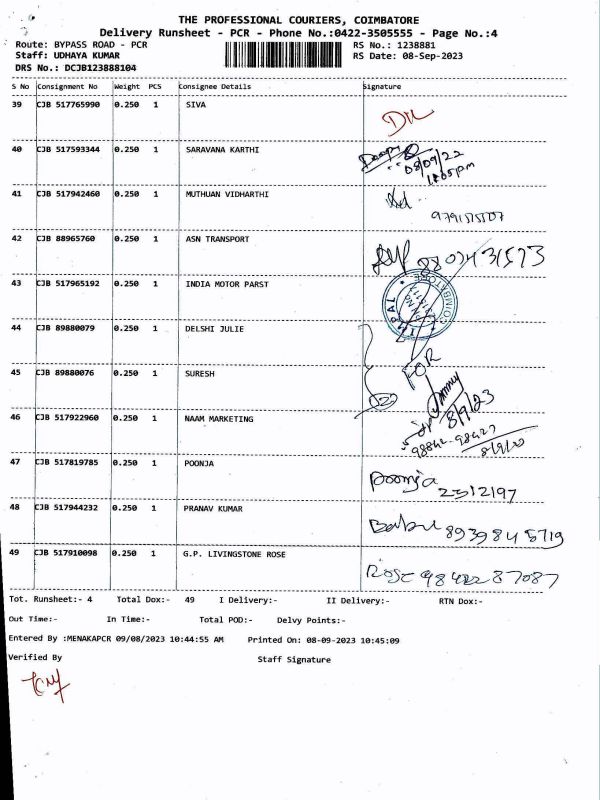 THE PROFESSIONAL COURIERS, COIMBATORE
Delivery Runsheet - PCR - Phone No.:0422-3505555 - Page No.:4
Route: BYPASS ROAD - PCR
RS No.: 1238881
Staff: UDHAYA KUMAR
RS Date: 08-Sep-2023
DRS No.: DCJB123888104
S No Consignment No Weight PCS Consignee Details Signature
39 CJB 517765990 0.250 1 SIVA
40 CJB 517593344 0.250 1 SARAVANA KARTHI
08/09/22
41 CJB 517942460 0.250 1 MUTHUAN VIDHARTHI
42 CJB 88965760 0.250 1 ASN TRANSPORT
43 CJB 517965192 0.250 1 INDIA MOTOR PARST
44 CJB 89880079 0.250 1 DELSHI JULIE
FOR
45 CJB 89880076 0.250 1 SURESH
8/9/23
46 CJB 517922960 0.250 1 NAAM MARKETING
47 CJB 517819785 0.250 1 POONJA
poonja 2512197
48 CJB 517944232 0.250 1 PRANAV KUMAR
Babu 8939845719
49 CJB 517910098 0.250 1 G.P. LIVINGSTONE ROSE
Rose
Tot. Runsheet:- 4 Total Dox:- 49 I Delivery:- II Delivery:- RTN Dox:-
Out Time:- In Time:- Total POD:- Delvy Points:-
Entered By :MENAKAPCR 09/08/2023 10:44:55 AM Printed On: 08-09-2023 10:45:09
Verified By Staff Signature